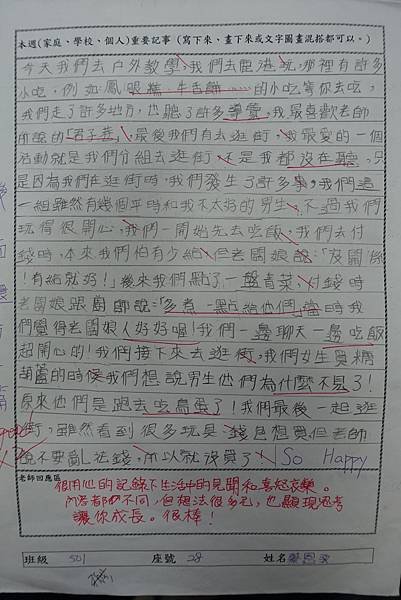 本週(家庭、學校、個人)重要記事 (寫下來、畫下來或文字圖畫混搭都可以。)
今天我們去戶外教學,我們去鹿港玩,那裡有許多
小吃,例如鳳眼糕、牛舌餅……的小吃等你去吃,
我們走了許多地方,也聽了許多導覽,我最喜歡老師
所說的「君子巷」,最後我們有去逛街,我最愛的一個
活動就是我們分組去逛街,不是我都沒在聽,只
是因為我們在逛街時,我們發生了許多事,我們這
一組雖然有幾個平時和我不太好的男生,不過我們
玩得很開心,我們一開始先去吃飯,我們去付
錢時,本來我們怕有少給,但老闆娘說:「沒關係
!有給就好!」後來我們點了一盤青菜,付錢時
老闆娘跟廚師說:「多煮一點給他們」當時我
們覺得老闆娘人好好喔!我們一邊聊天一邊吃飯
超開心的!我們接下來去逛街,我們女生買糖
葫蘆的時候我們想說男生他們為什麼不見了!
原來他們是跑去吃鳥蛋了!我們最後一起逛
街,雖然看到很多玩具,錢
想買但老師
說不要亂花錢,所以就沒買了! So Happy
老師回應區
很用心的記錄下生活中的見聞和喜怒哀樂。
內容都不同,但想法很多元,也顯現思考
讓你成長。很棒!
班級 501 座號 28 姓名